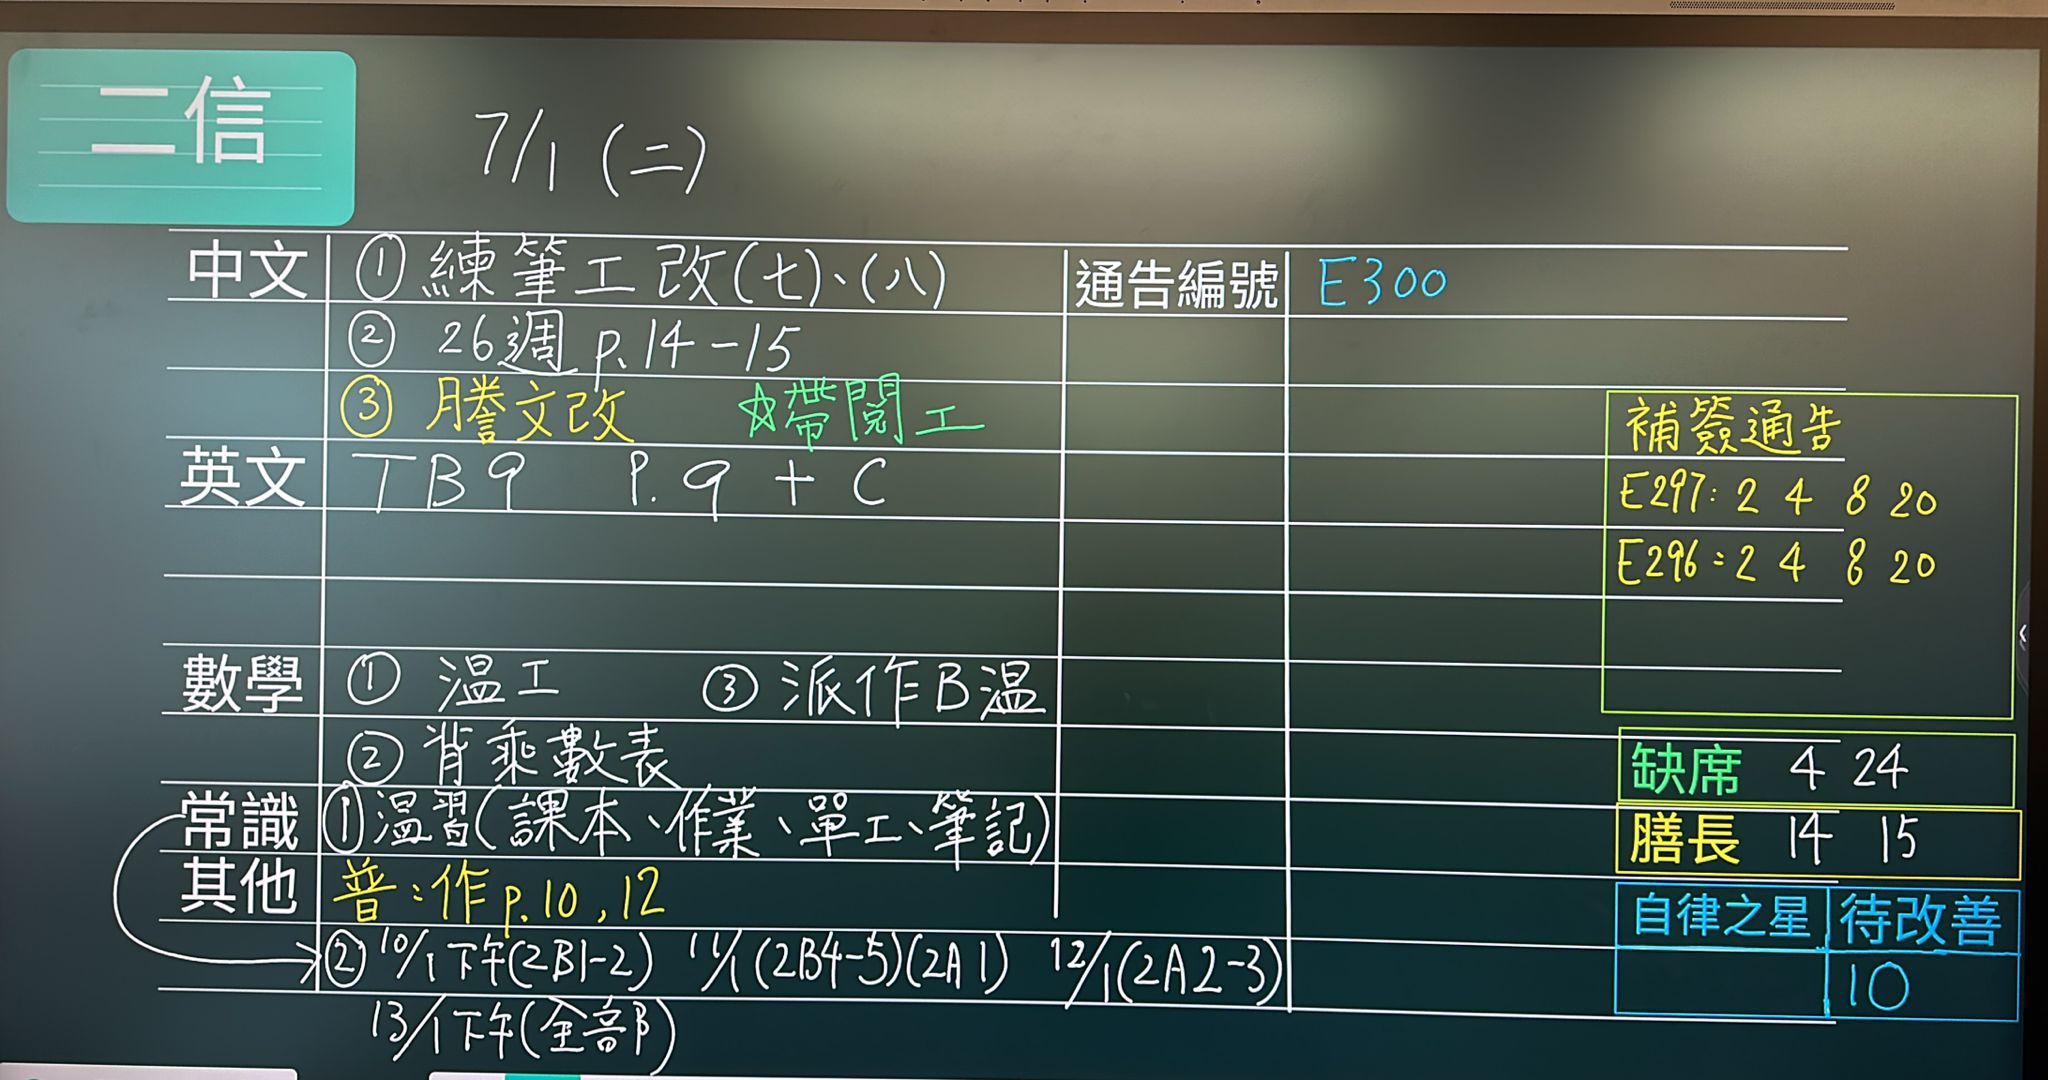 二信
7/1 (二)
中文 ① 練筆工改(七)、(八) 通告編號 E300
② 26週 p.14-15
③ 謄文改 ☆帶閱工
英文 TB9 P.9 + C
數學 ① 温工 ③ 派作B温
② 背乘數表
常識 ①温習(課本、作業、單工、筆記)
其他 普:作p.10,12
② 10/1下午(2B1-2) 11/1(2B4-5)(2A1) 12/1(2A2-3)
13/1下午(全部)
補簽通告
E297: 2 4 8 20
E296: 2 4 8 20
缺席 4 24
膳長 14 15
自律之星 待改善
10